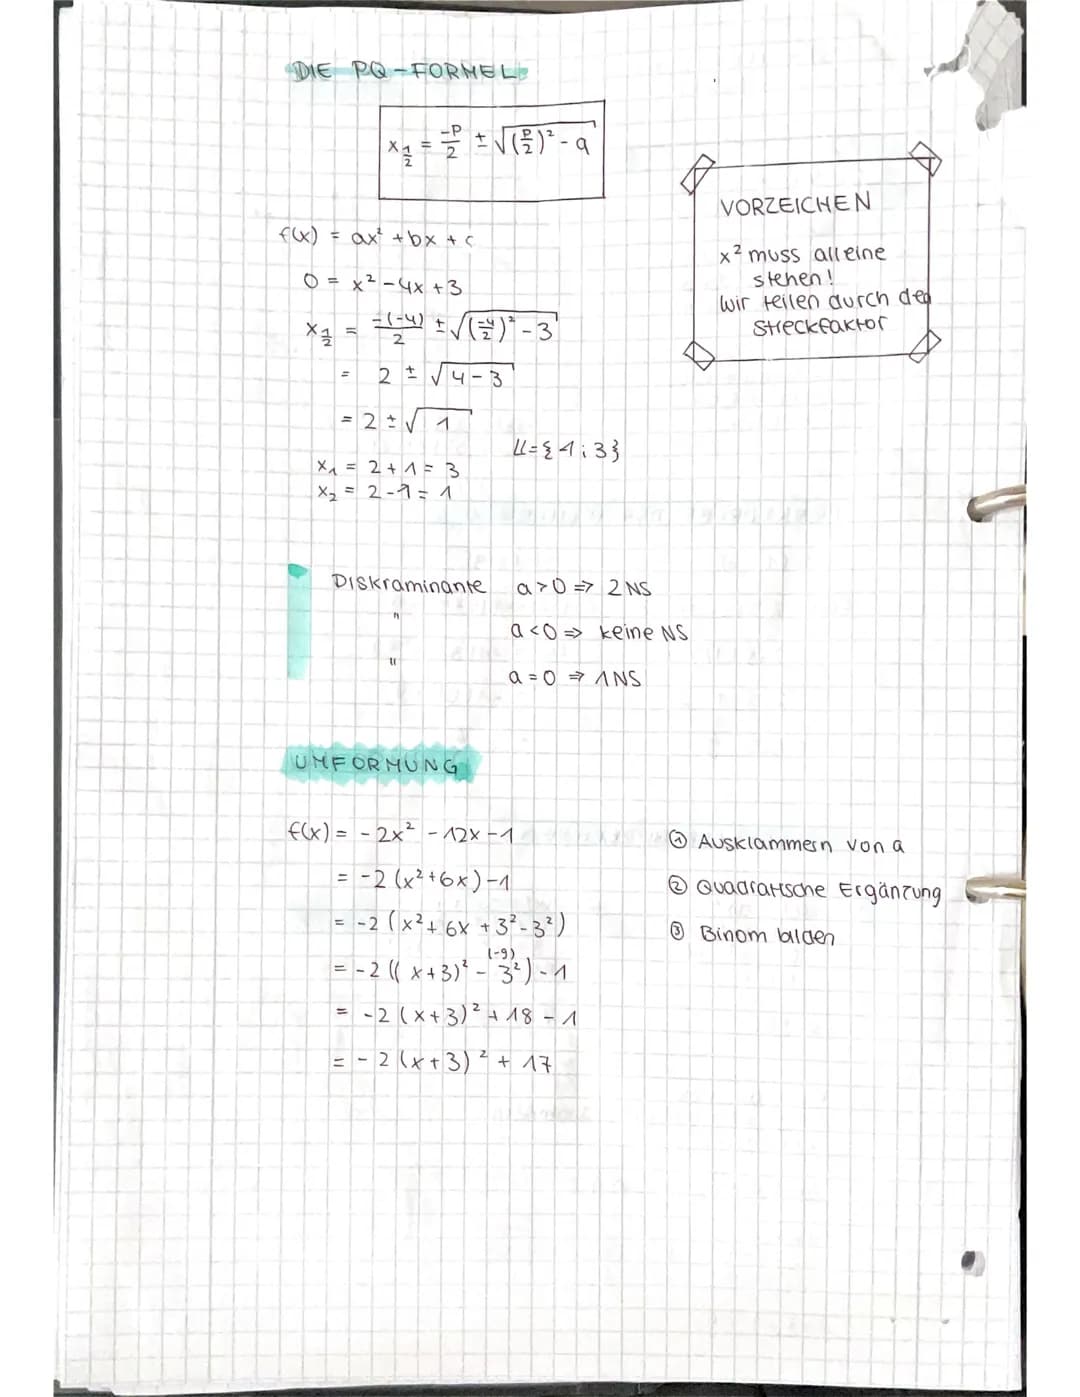 DIE PQ-FORMEL
x½ = -p/2 ± √((p/2)² - q
VORZEICHEN
x² muss alleine
stehen!
Wir teilen durch den
Streckfaktor
f(x) = ax² + bx + c
0 = x² - 4x + 3
x½ = -(-4)/2 ± √((-4/2)² - 3
= 2 ± √4 - 3
= 2 ± √1
𝕃 = {1; 3}
x₁ = 2 + 1 = 3
x₂ = 2 - 1 = 1
Diskraminante a > 0 ⇒ 2 NS
" a < 0 ⇒ keine NS
" a = 0 ⇒ 1 NS
UMFORMUNG
f(x) = - 2x² - 12x - 1
= -2 (x² + 6x) - 1
= -2 (x² + 6x + 3² - 3²)
(-9)
= -2 (( x + 3)² - 3²) - 1
= -2 (x + 3)² + 18 - 1
= - 2 (x + 3)² + 17
① Ausklammern von a
② Quadratische Ergänzung
③ Binom bilden